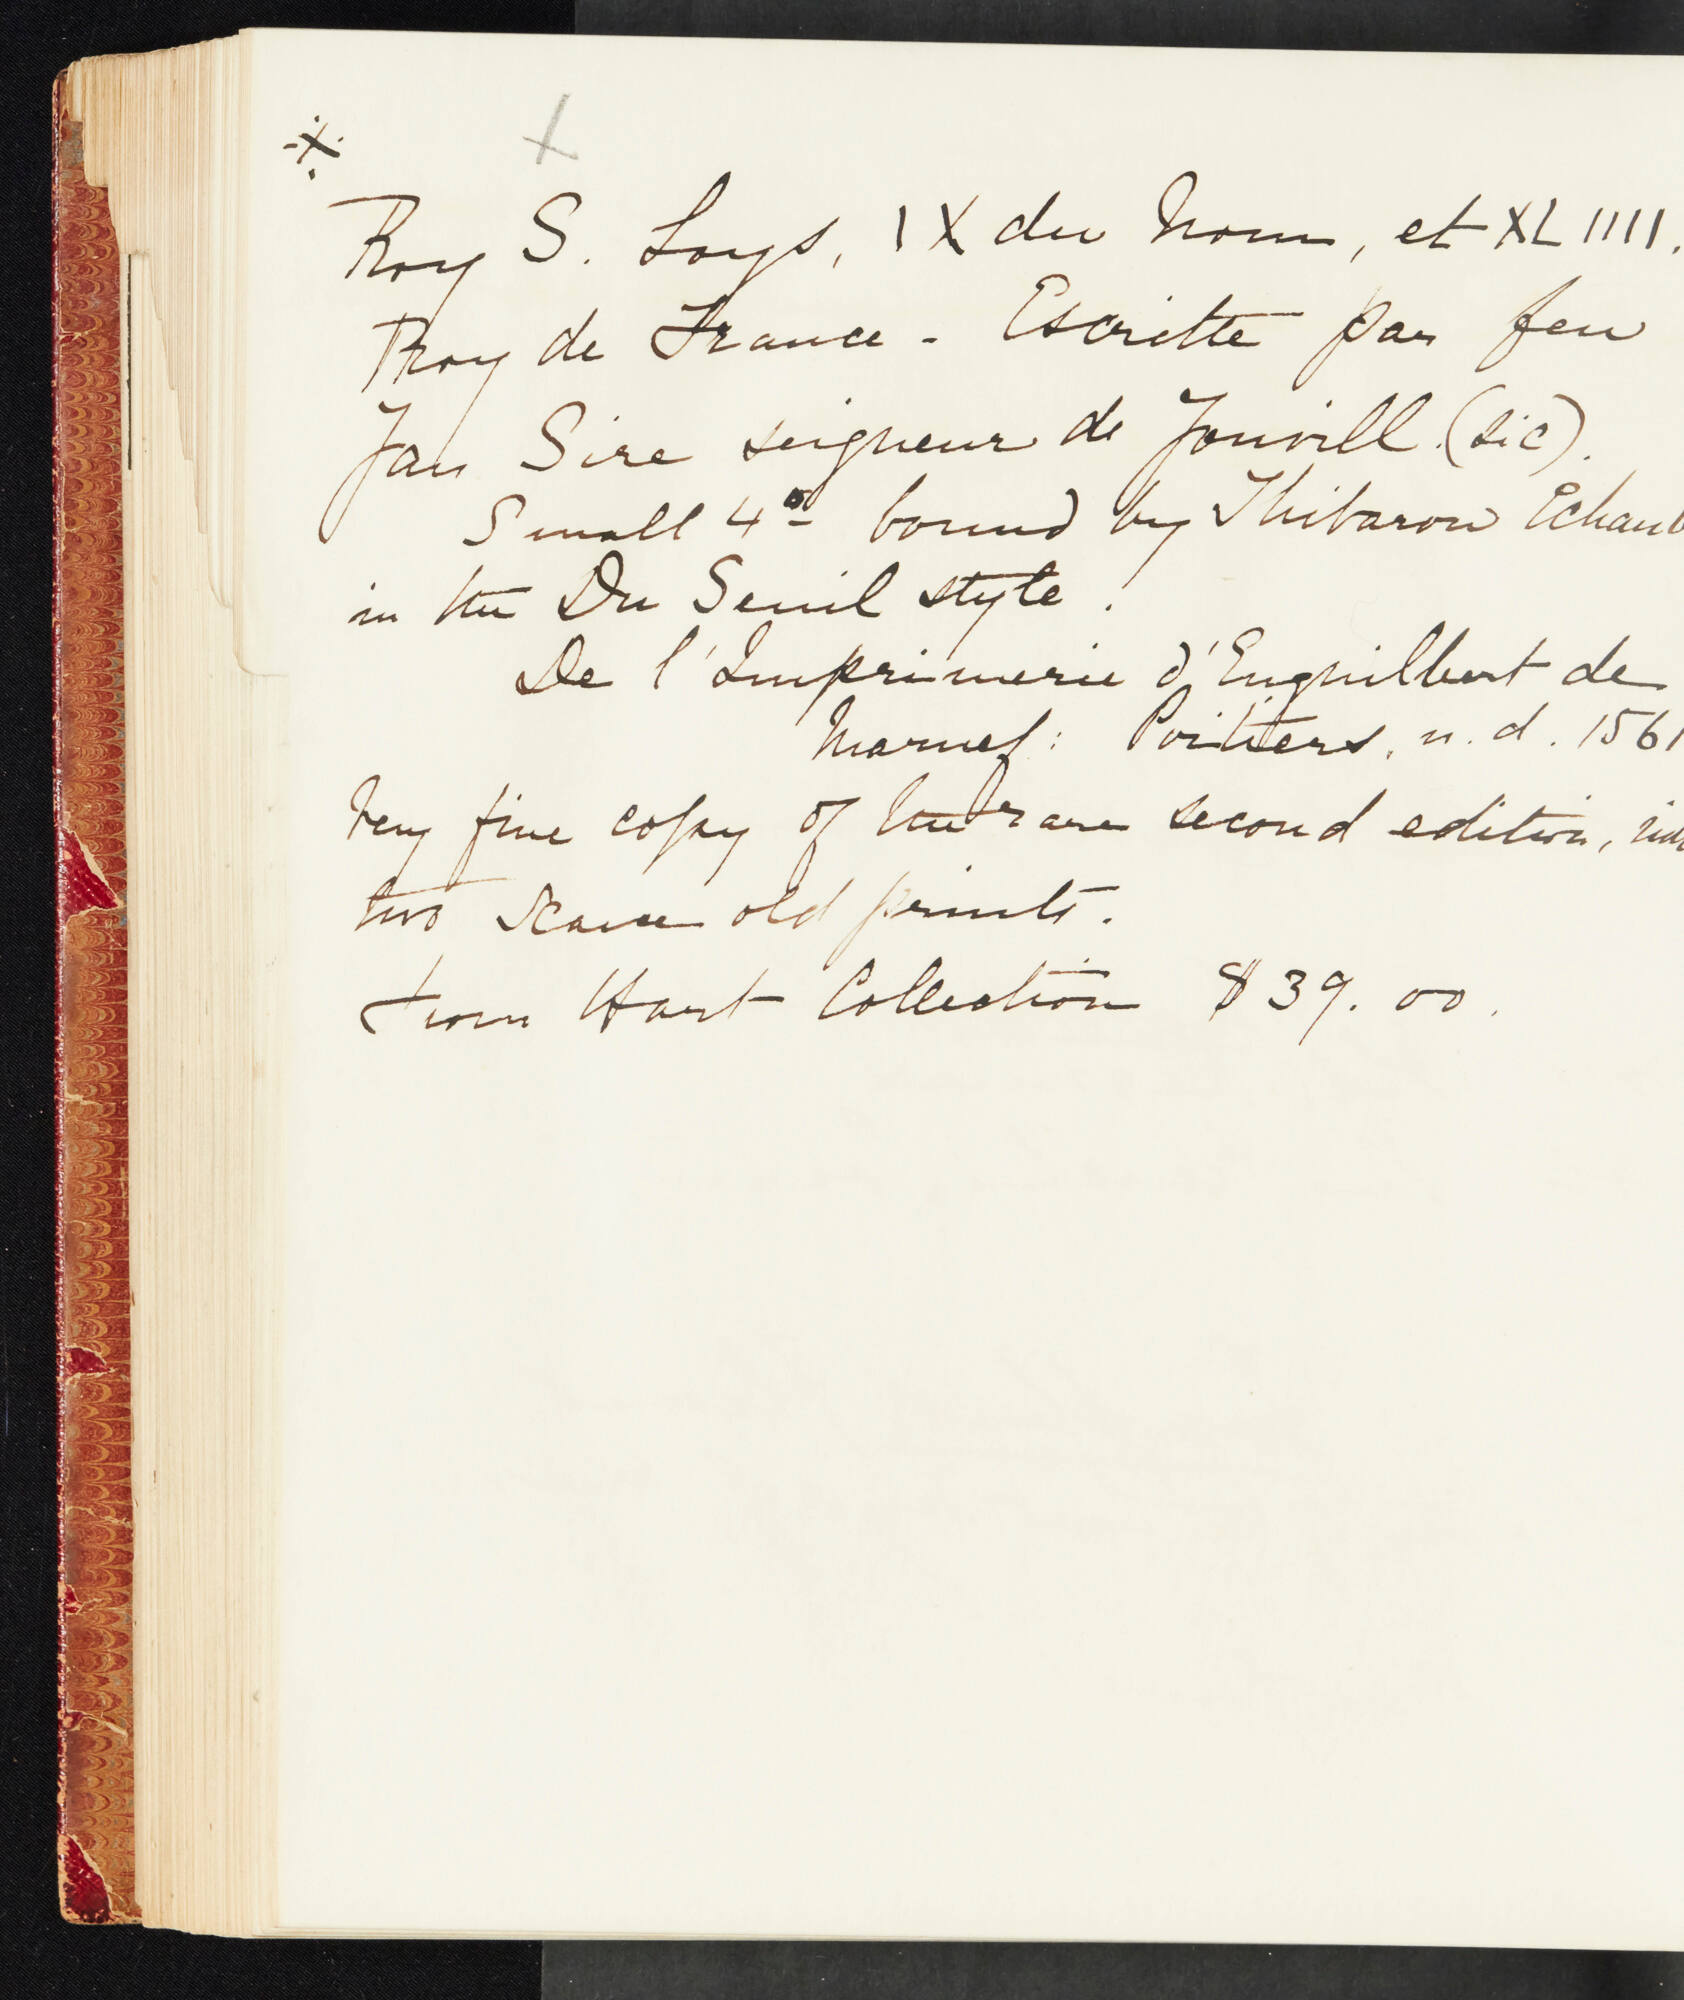 Roy S. Loys, IX du Nom, et XLIIII.
Roy de France - Escritte par feu
Jan Sire seigneur de Jonvill. (sic).
Small 4º bound by Thibaron Echaub
in the Du Seuil style.
De l'Imprimerie d'Enguilbert de
Marnef: Poitiers. n.d. 1561
Very fine copy of the rare second edition,
two scarce old prints.
From Hart Collection $39.00.